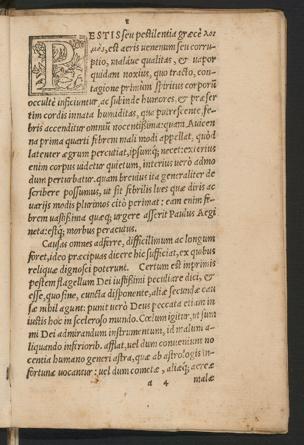 PESTIS seu pestilentia græcè λοι
μὸς, est aeris uenenum seu corru-
ptio, maláue qualitas, & uapor
quidam noxius, quo tracto, con-
tagione primùm spiritus corporũ
occultè inficiuntur, ac subinde humores, & præser
tim cordis innata humiditas, qua putrescente, fe-
bris accenditur omniũ nocentissima: quam Auicen
na prima quarti fibrem mali modi appellat, quòd
latenter ægrum percutiat, ipsumq; necet: exterius
enim corpus uidetur quietum, interius uerò admo
dum perturbatur. quam breuiùs ita generaliter de
scribere possumus, ut sit febrilis lues quæ diris ac
uarijs modis plurimos citò perimat: eam enim fe-
brem uastissima quæq; urgere asserit Paulus Aegi
neta: estq; morbus peracutus.
Causas omnes adferre, difficilimum ac longum
foret, ideo præcipuas dicere hic sufficiat, ex quibus
reliquæ dignosci poterunt. Certum est inprimis
pestem flagellum Dei iustissimi peculiare dici, &
esse, quo sine, cuncta disponente, aliæ secundæ cau
sæ nihil agunt: punit uerò Deus peccata etiam in
iustis hoc in sceloroso mundo. Cœlum igitur, ut sum
mi Dei admirandum instrumentum, id malum a-
liquando inferiorib. afflat, uel dum conuenium no
centia humano generi astra, quæ ab astrologis in-
fortunæ uocantur: uel dum cometæ, aliæq; aereæ
a 4 malæ